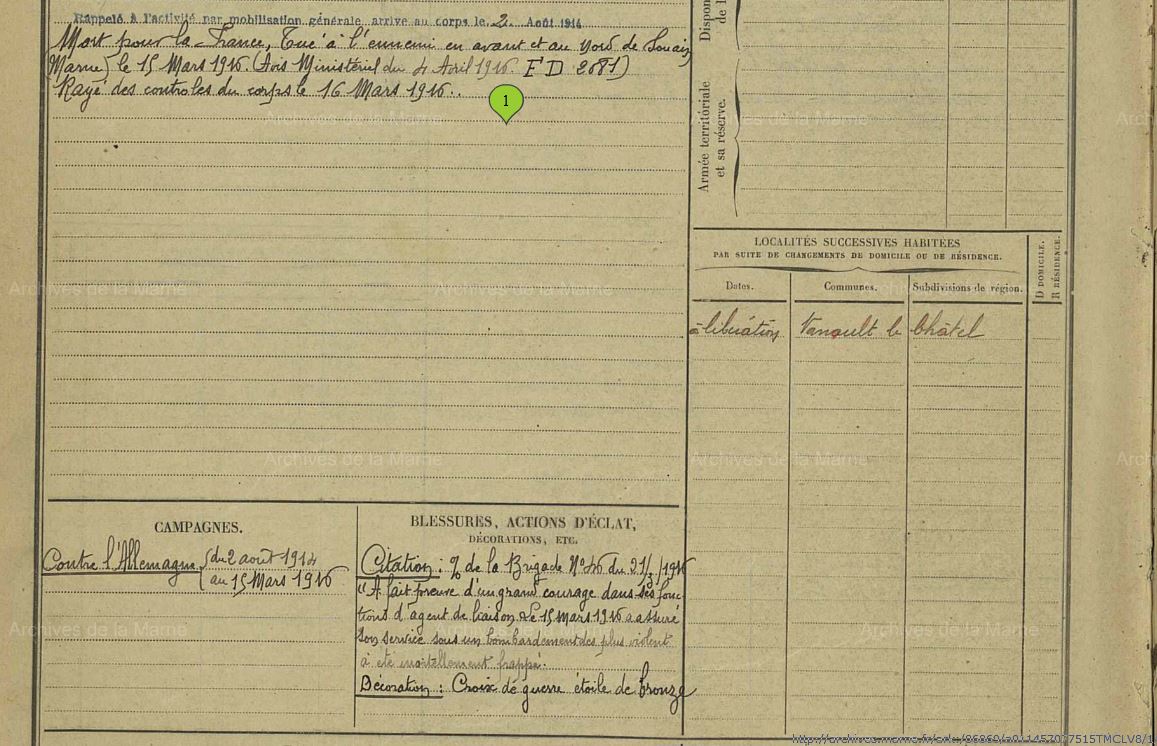 Rappelé à l'activité par mobilisation générale arrive au corps le 2 Août 1914
Mort pour la France, Tué à l'ennemi en avant et au Nord de Souain
(Marne) le 15 Mars 1916. (Avis Ministériel du 4 Avril 1916. FD 2681)
Rayé des contrôles du corps le 16 Mars 1916.
1
Armée territoriale
et sa réserve.
LOCALITÉS SUCCESSIVES HABITÉES
PAR SUITE DE CHANGEMENTS DE DOMICILE OU DE RÉSIDENCE.
D DOMICILE.
R RÉSIDENCE.
Dates. Communes. Subdivisions de région.
à libération Vanault le Châtel
CAMPAGNES.
Contre l'Allemagne du 2 août 1914
au 15 Mars 1916
BLESSURES, ACTIONS D'ÉCLAT,
DÉCORATIONS, ETC.
Citation : de la Brigade N°46 du 21/3/1916
"A fait preuve d'un grand courage dans ses fonc
tions d'agent de liaison. Le 15 mars 1916 a assuré
son service sous un bombardement des plus violent
a été mortellement frappé.
Décoration : Croix de guerre étoile de bronze
Archives de la Marne